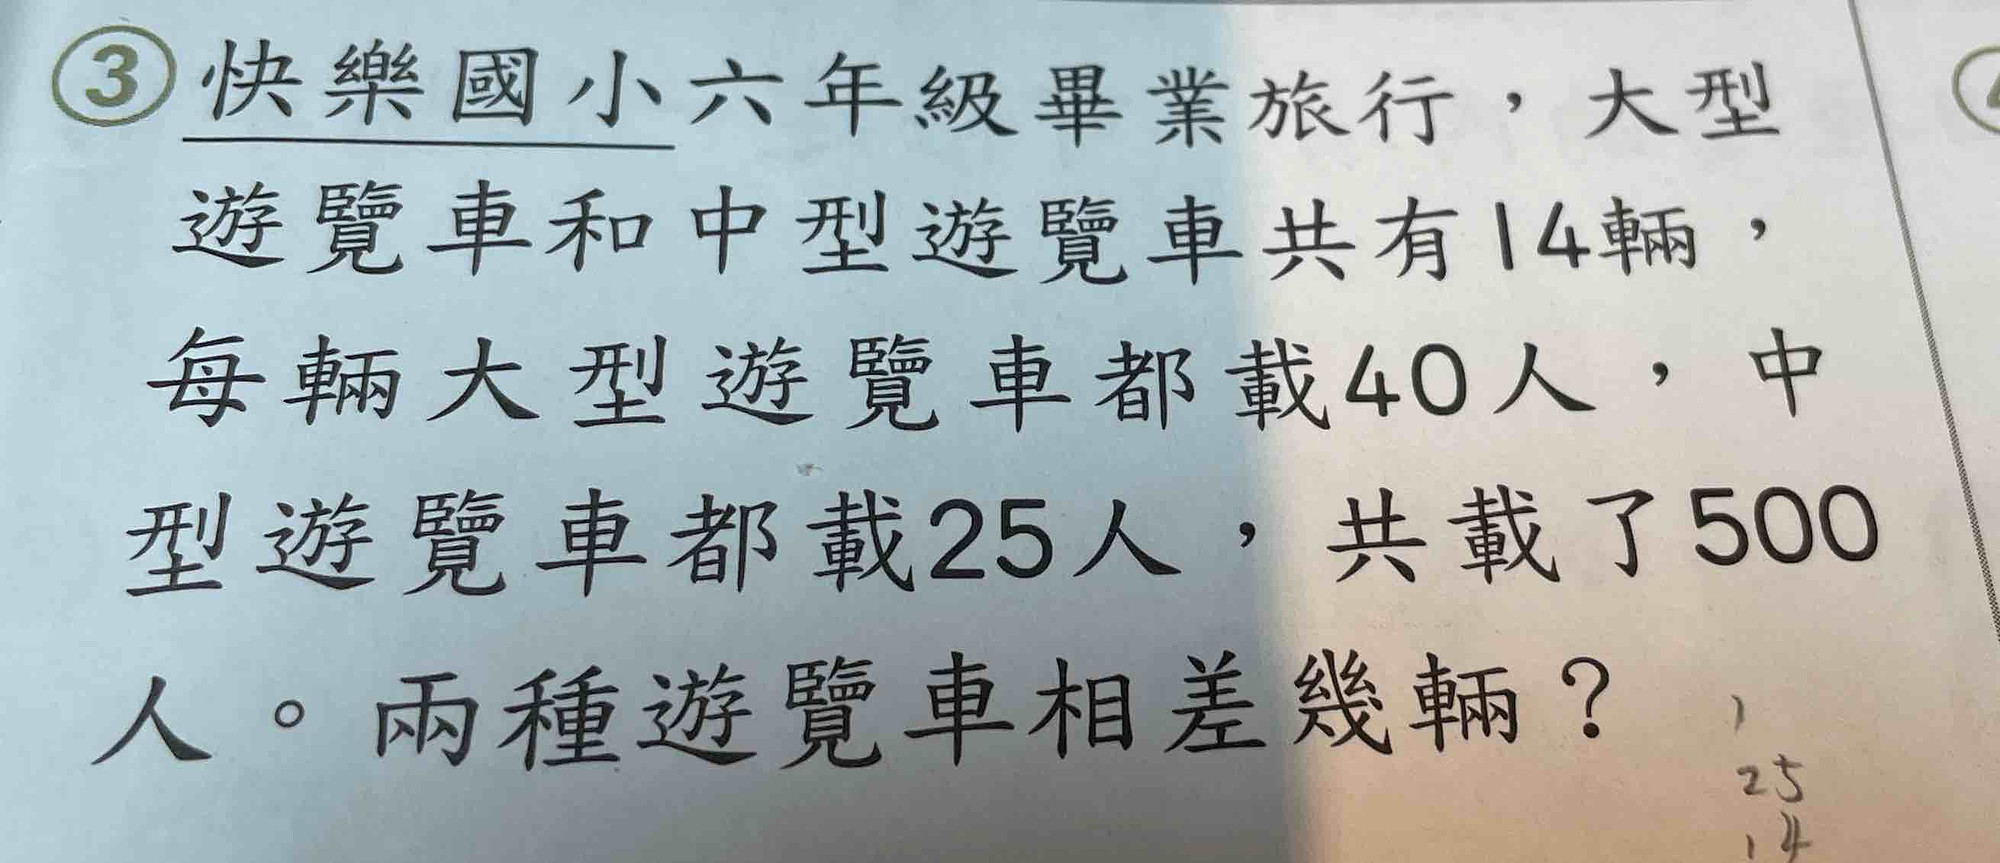 ③快樂國小六年級畢業旅行，大型
遊覽車和中型遊覽車共有14輛，
每輛大型遊覽車都載40人，中
型遊覽車都載25人，共載了500
人。兩種遊覽車相差幾輛？
25
14